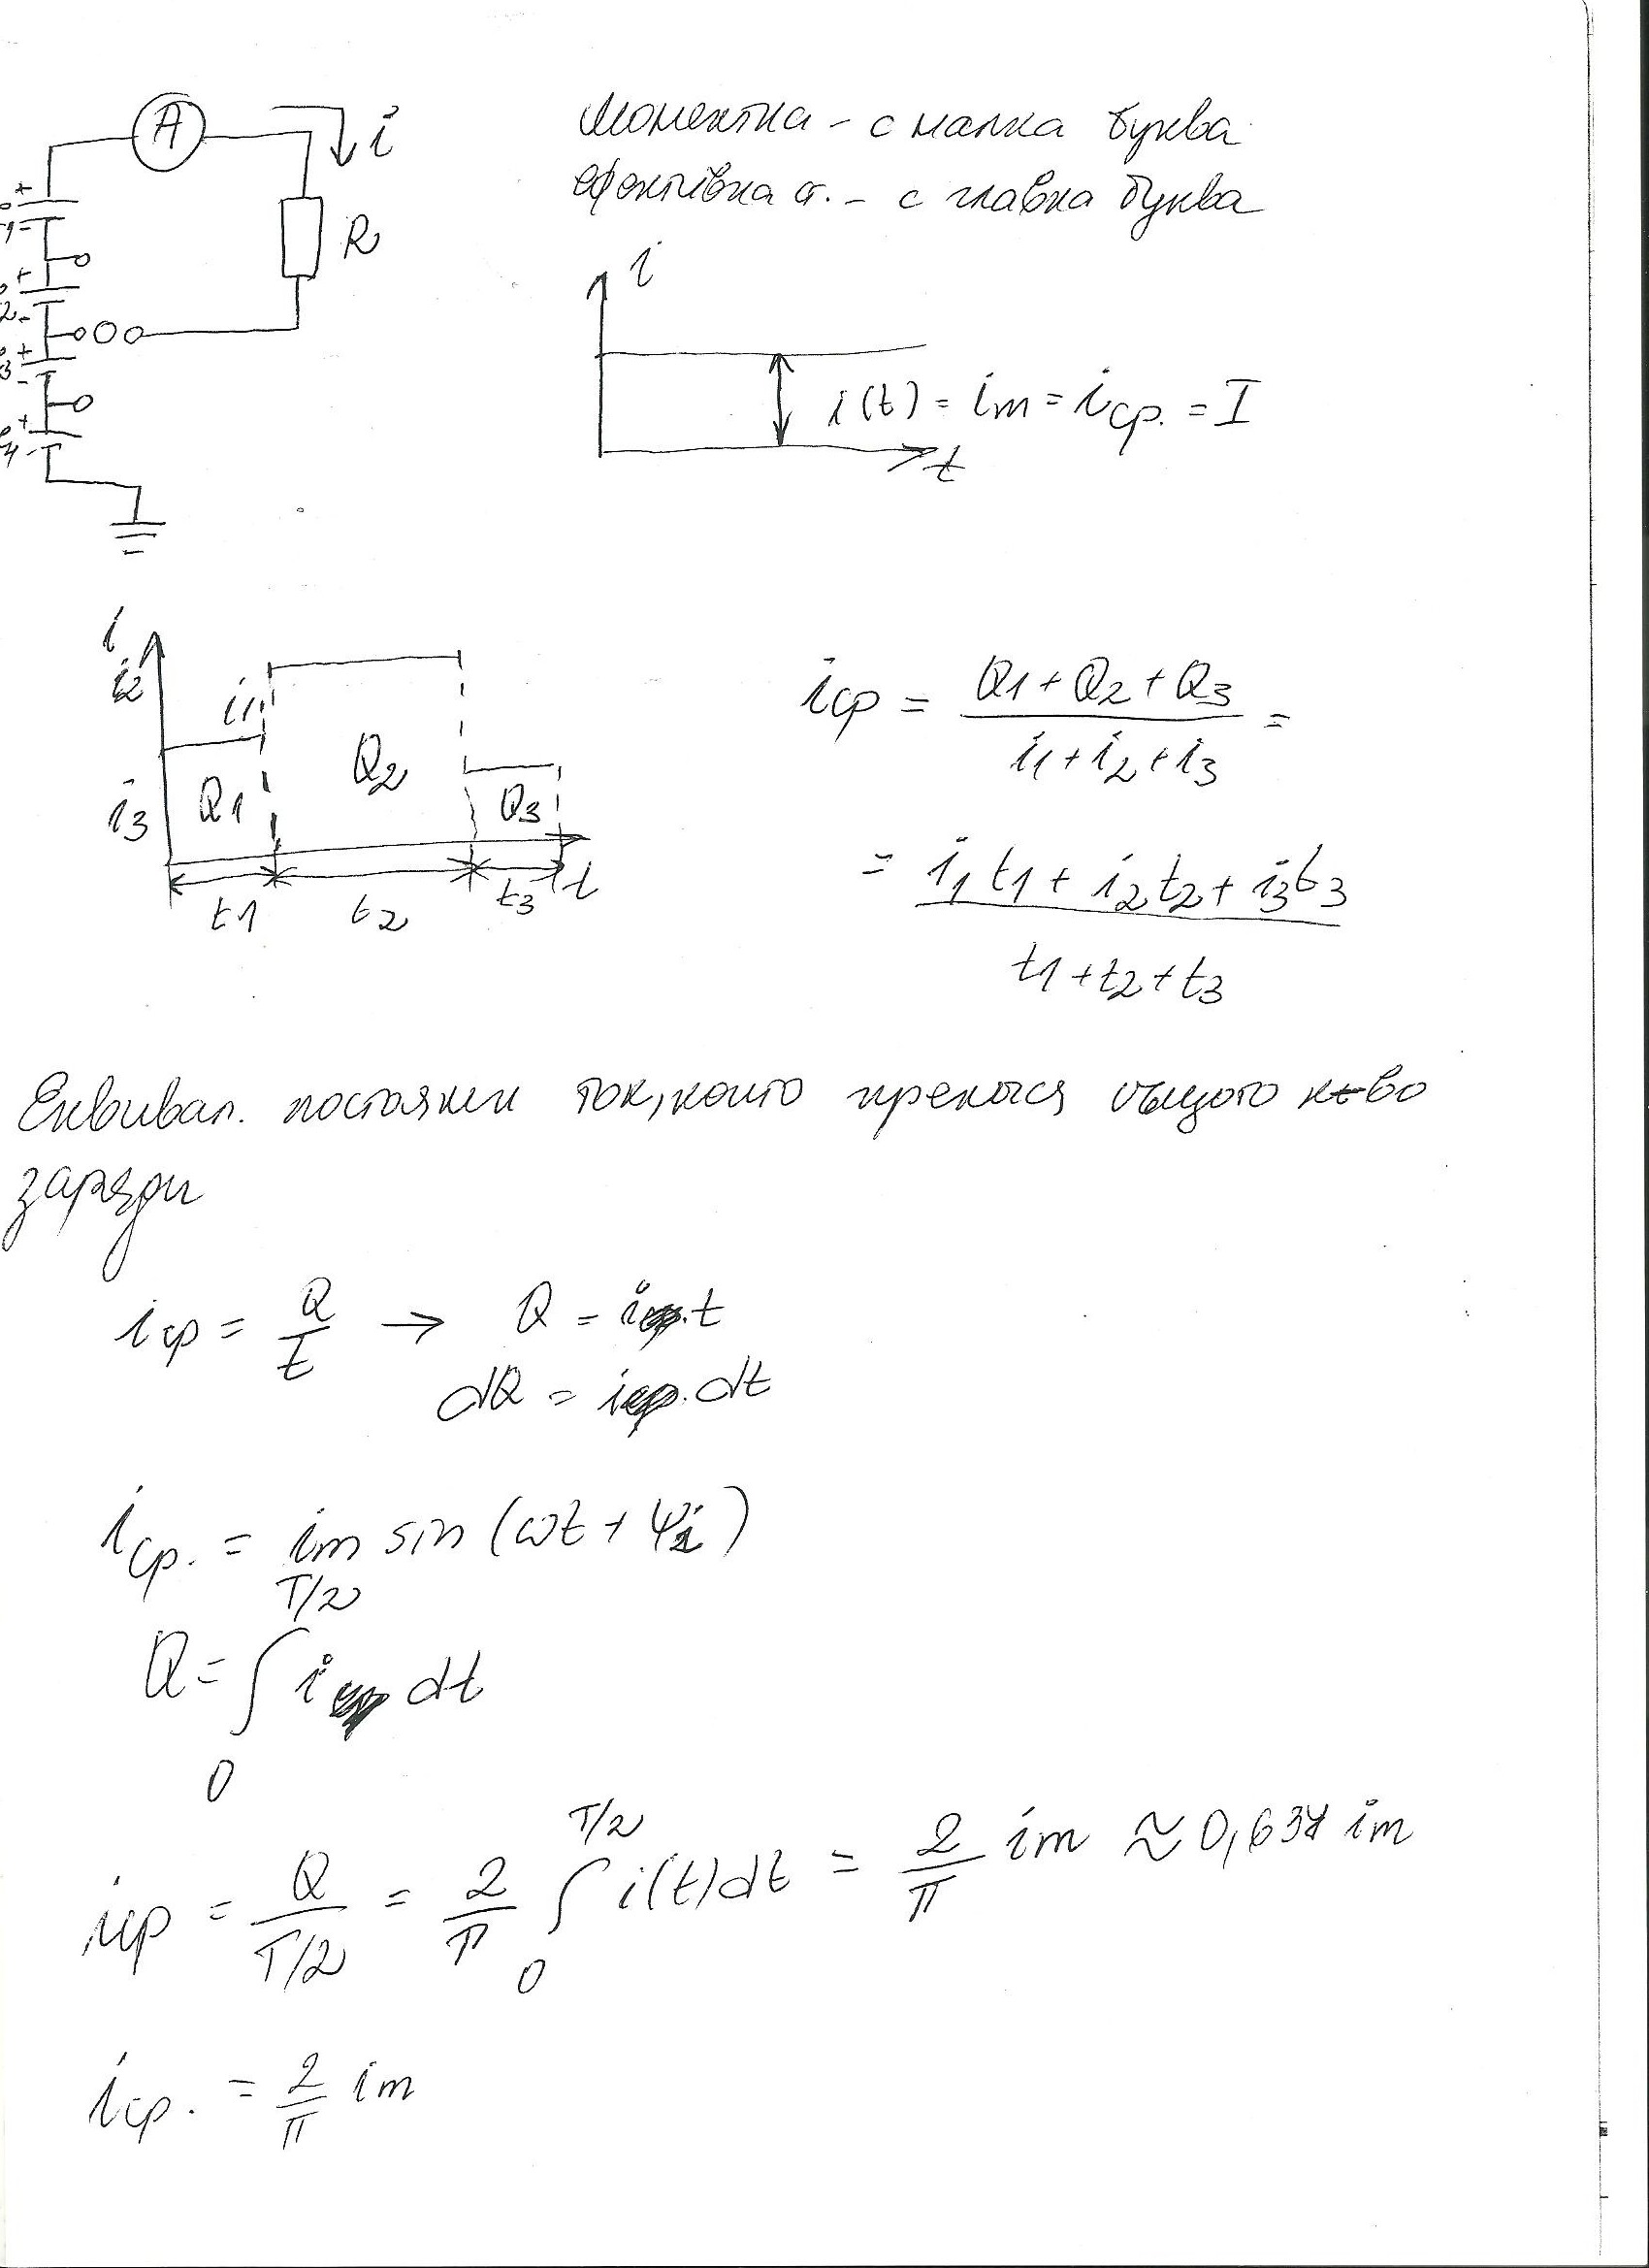 A
i
R
Моментна - с малка буква
ефективна ст. - с главна буква
i
i(t) = im = iср. = I
t
i
i2
i1
i3
Q1
Q2
Q3
t1
t2
t3
t
iср = Q1+Q2+Q3 / i1+i2+i3 =
= i1t1 + i2t2 + i3t3 / t1+t2+t3
Еквивал. постоянен ток, който пренася същото к-во
заряди
iср = Q/t → Q = i.t
dQ = i.dt
iср. = im sin (ωt + ψi)
T/2
Q = ∫ i dt
0
T/2
iср = Q / T/2 = 2/π ∫ i(t)dt = 2/π im ≈ 0,637 im
0
iср. = 2/π im